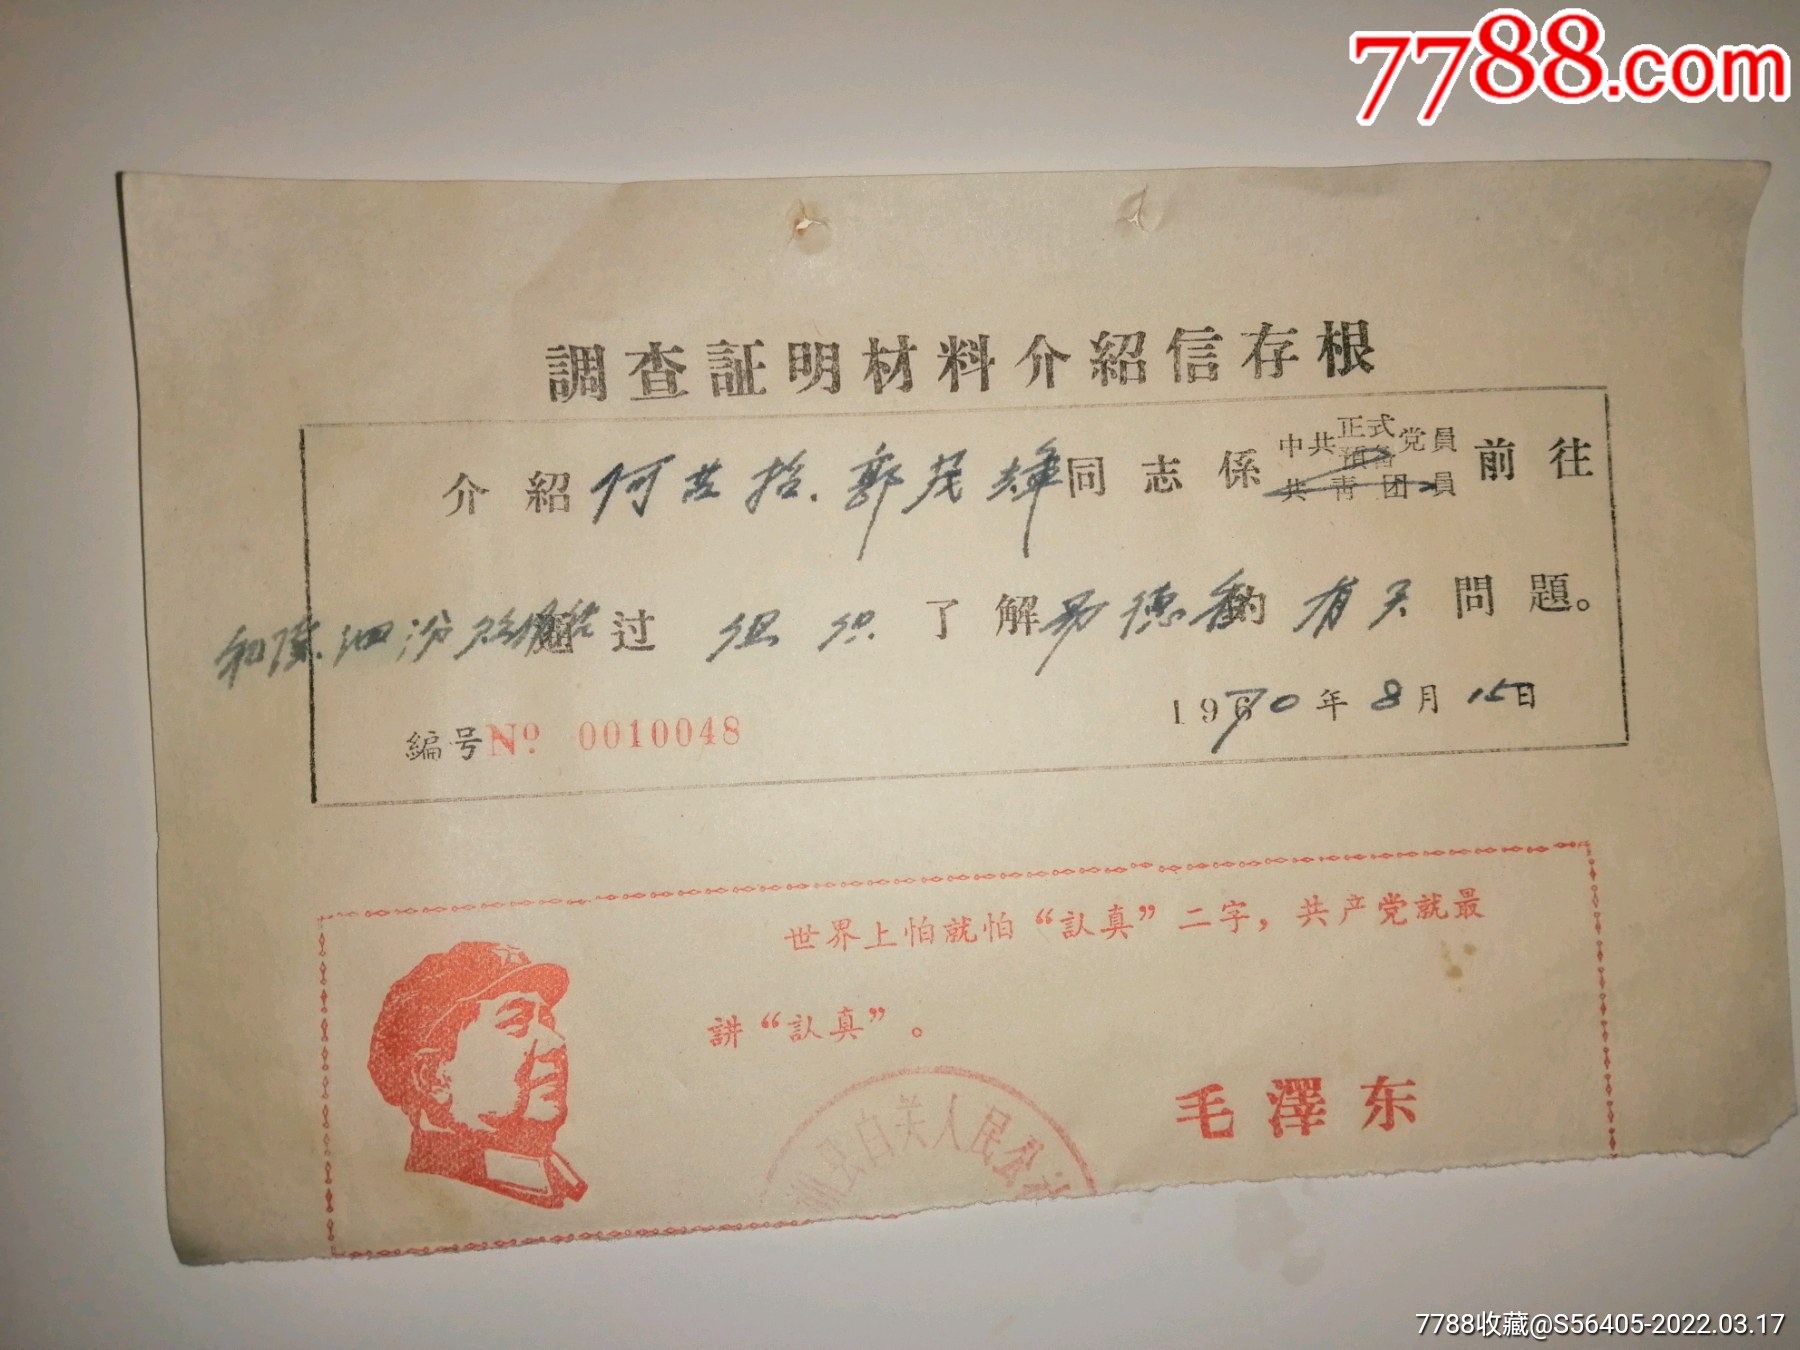 7788.com
調查証明材料介紹信存根
介紹何芸拾.郭茂輝同志係中共正式預备党員共青团員前往
通过组织了解易德香的有关問題。
編号No 0010048
1970年8月15日
世界上怕就怕“訫真”二字，共产党就最
讲“訫真”。
毛澤东
州县白关人民公社
7788收藏@S56405-2022.03.17